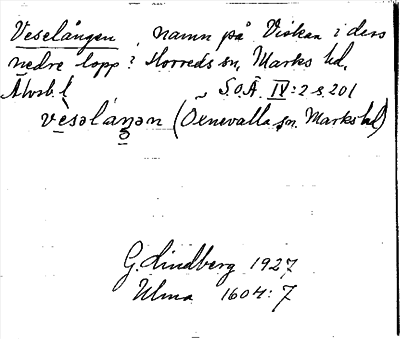 Veselången, namn på Viskan i dess
nedre lopp? Horreds sn, Marks hd,
Älvsb. l. „ S.O.Ä. IV:2 s. 201
vèsəláŋən (Öxnevalla sn. Marks hd)
G. Lindberg 1927
Ulma 1604:7